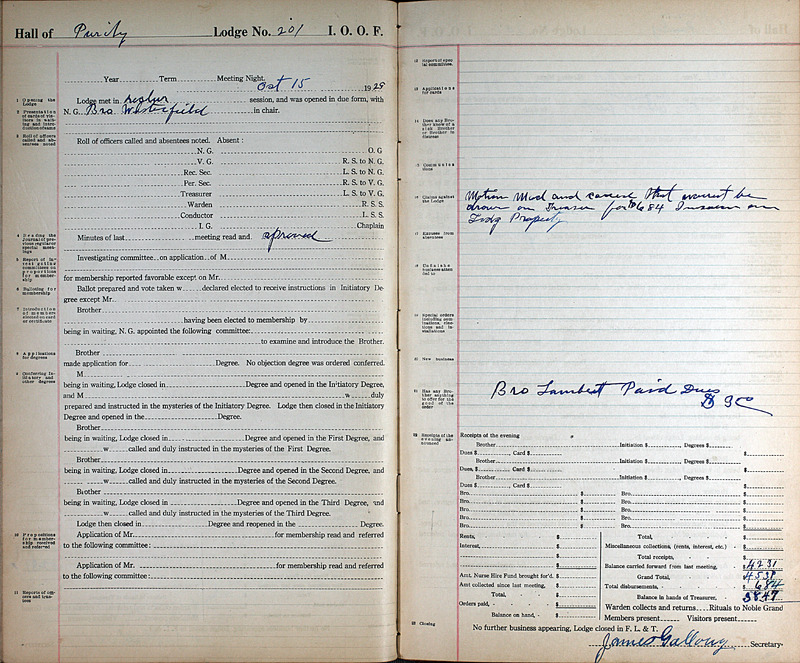 Hall of Purity Lodge No. 201 I. O. O. F.
Year Term Meeting Night.
Oct 15 1929
1 Opening the Lodge
Lodge met in session, and was opened in due form, with
N. G. Bro Westerfield in chair.
3 Roll of officers called and absentees noted
Roll of officers called and absentees noted. Absent:
N. G. O. G
V. G. R. S. to N. G.
Rec. Sec. L. S. to N. G.
Per. Sec. R. S. to V. G.
Treasurer L. S. to V. G.
Warden R. S. S.
Conductor L. S. S.
I. G. Chaplain
Minutes of last meeting read and aproved
Investigating committee on application of M
for membership reported favorable except on Mr.
6 Balloting for membership
Ballot prepared and vote taken w declared elected to receive instructions in Initiatory De-
gree except Mr.
Brother
having been elected to membership by
being in waiting, N. G. appointed the following committee:
to examine and introduce the Brother.
8 Applications for degrees
Brother
made application for Degree. No objection degree was ordered conferred.
M
being in waiting, Lodge closed in Degree and opened in the Initiatory Degree,
and M w duly
prepared and instructed in the mysteries of the Initiatory Degree. Lodge then closed in the Initiatory
Degree and opened in the Degree.
Brother
being in waiting, Lodge closed in Degree and opened in the First Degree, and
w called and duly instructed in the mysteries of the First Degree.
Brother
being in waiting, Lodge closed in Degree and opened in the Second Degree, and
w called and duly instructed in the mysteries of the Second Degree.
Brother
being in waiting, Lodge closed in Degree and opened in the Third Degree, and
w called and duly instructed in the mysteries of the Third Degree.
Lodge then closed in Degree and reopened in the Degree.
10 Propositions for membership received and referred
Application of Mr. for membership read and referred
to the following committee:
Application of Mr. for membership read and referred
to the following committee:
11 Reports of officers and trustees
12 Report of special committees.
13 Applications for cards
14 Does any Brother know of a sick Brother or Brother in distress
15 Communications
16 Claims against the Lodge
Motion Mad and caried that warrent be
drawn on Treasur for $6 84 Insuranc on
Lodg Property
17 Excuses from absentees
18 Unfinished business attended to
20 New business
21 Has any Brother anything to offer for the good of the order
Bro Lambert Paid Dues
$ 3 00
22 Receipts of the evening announced
Receipts of the evening
Brother Initiation $ Degrees $
Dues $ , Card $ $
Brother Initiation $ Degrees $
Dues, $ Card $ $
Brother Initiation $ Degrees $
Dues $ , Card $ $
Bro. $ Bro. $
Bro. $ Bro. $
Bro. $ Bro. $
Bro. $ Bro. $
Rents, $ Total, $
Interest, $ Miscellaneous collections, (rents, interest, etc.) $
$ Total receipts, $
$ Balance carried forward from last meeting, $ 42 31
Amt. Nurse Hire Fund brought for'd. $ Grand Total, $ 45 31
Amt collected since last meeting, $ Total disbursements, $ 6 84
Total, $ Balance in hands of Treasurer, $ 38 47
Orders paid, $ Warden collects and returns Rituals to Noble Grand
Balance on hand, $ Members present Visitors present
23 Closing
No further business appearing, Lodge closed in F. L. & T.
James Galloway Secretary